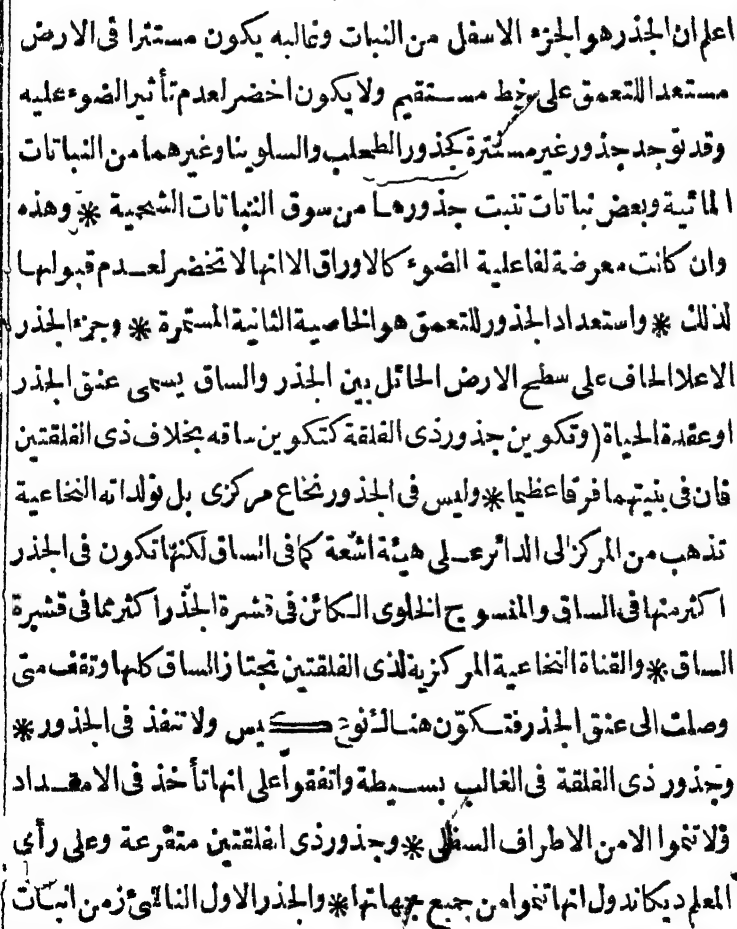 اعلم ان الجذر هو الجزء الاسفل من النبات وغالبه يكون مستترا فى الارض
مستعدا للتعمق على خط مستقيم ولا يكون اخضر لعدم تأثير الضوء عليه
وقد توجد جذور غير مستترة كجذور الطحلب والسلوينا وغيرهما من النباتات
المائية وبعض نباتات تنبت جذورها من سوق النباتات الشحمية * وهذه
وان كانت معرضة لفاعلية الضوء كالاوراق الا انها لا تخضر لعدم قبولها
لذلك * واستعداد الجذور للتعمق هو الخاصية الثانية المستمرة * وجزء الجذر
الاعلا الحاف على سطح الارض الحائل بين الجذر والساق يسمى عنق الجذر
او عقدة الحياة (وتكوين جذور ذى الفلقة كتكوين ساقه بخلاف ذى الفلقتين
فان فى بنيتهما فرقا عظيما * وليس فى الجذور نخاع مركزى بل تولداته النخاعية
تذهب من المركز الى الدائر على هيئة اشعة كما فى الساق لكنها تكون فى الجذر
اكثر منها فى الساق والمنسوج الخلوى الكائن فى قشرة الجذر اكثر مما فى قشرة
الساق * والقناة النخاعية المركزية لذى الفلقتين تجتاز الساق كلها وتقف متى
وصلت الى عنق الجذر فتكوّن هنالك نوع كيس ولا تنفذ فى الجذور *
وجذور ذى الفلقة فى الغالب بسيطة واتفقوا على انها تأخذ فى الامتداد
ولا تنموا الا من الاطراف السفلى * وجذور ذى الفلقتين متفرعة وعلى رأى
المعلم ديكاندول انها تنموا من جميع جهاتها * والجذر الاول الناشئ زمن انبات